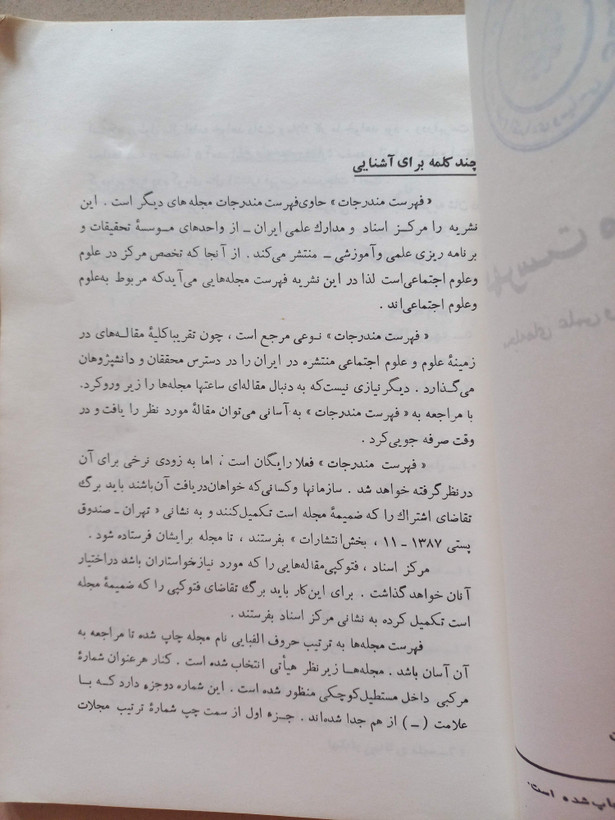 چند کلمه برای آشنایی
« فهرست مندرجات » حاوی فهرست مندرجات مجله های دیگر است . این
نشریه را مرکز اسناد و مدارک علمی ایران ـ از واحدهای موسسهٔ تحقیقات و
برنامه ریزی علمی و آموزشی ـ منتشر می‌کند . از آنجا که تخصص مرکز در علوم
وعلوم اجتماعی است لذا در این نشریه فهرست مجله‌هایی می‌آید که مربوط به علوم
وعلوم اجتماعی‌اند .
« فهرست مندرجات » نوعی مرجع است ، چون تقریبا کلیهٔ مقاله‌های در
زمینهٔ علوم و علوم اجتماعی منتشره در ایران را در دسترس محققان و دانشپژوهان
می‌گذارد . دیگر نیازی نیست که به دنبال مقاله‌ای ساعتها مجله‌ها را زیر و رو کرد.
با مراجعه به « فهرست مندرجات » به آسانی می‌توان مقالهٔ مورد نظر را یافت و در
وقت صرفه جویی کرد .
« فهرست مندرجات » فعلا رایگان است ، اما به زودی نرخی برای آن
در نظر گرفته خواهد شد . سازمانها و کسانی که خواهان دریافت آن باشند باید برگ
تقاضای اشتراک را که ضمیمهٔ مجله است تکمیل کنند و به نشانی « تهران ـ صندوق
پستی ۱۳۸۷ ـ ۱۱ ، بخش انتشارات » بفرستند ، تا مجله برایشان فرستاده شود .
مرکز اسناد ، فتوکپی مقاله‌هایی را که مورد نیاز خواستاران باشد در اختیار
آنان خواهد گذاشت . برای این کار باید برگ تقاضای فتوکپی را که ضمیمهٔ مجله
است تکمیل کرده به نشانی مرکز اسناد بفرستند .
فهرست مجله‌ها به ترتیب حروف الفبایی نام مجله چاپ شده تا مراجعه به
آن آسان باشد . مجله‌ها زیر نظر هیأتی انتخاب شده است . کنار هر عنوان شمارهٔ
مرکبی داخل مستطیل کوچکی منظور شده است . این شماره دو جزء دارد که با
علامت ( ـ ) از هم جدا شده‌اند . جزء اول از سمت چپ شمارهٔ ترتیب مجلات
فهرست